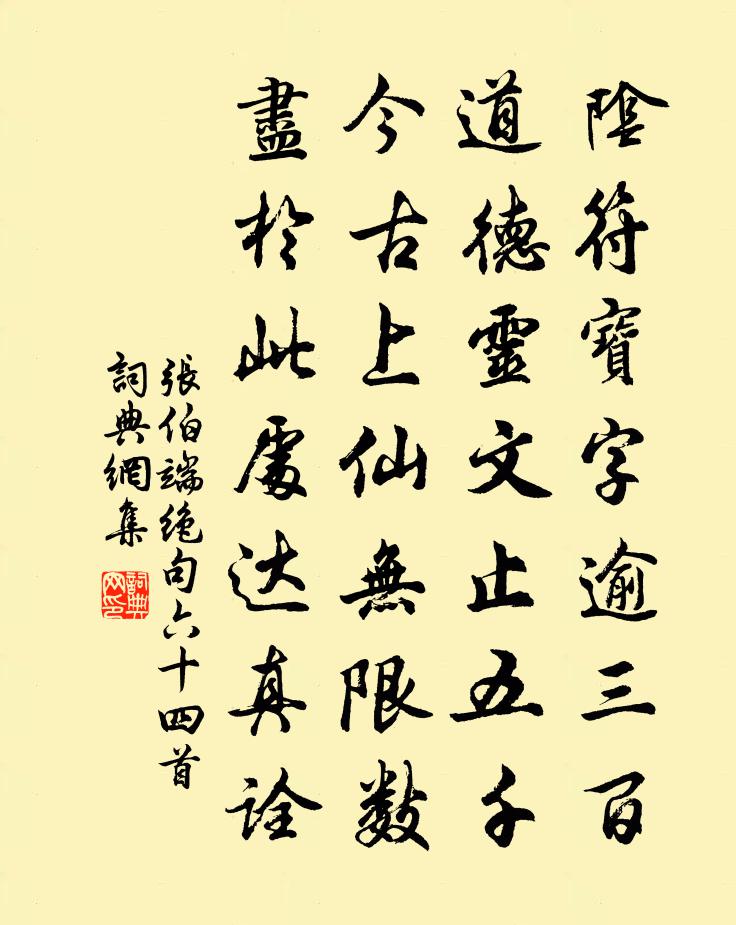 陰符寶字逾三百
道德靈文止五千
今古上仙無限数
盡於此處达真詮
張伯端絶句六十四首
詞典網集
詞典網印